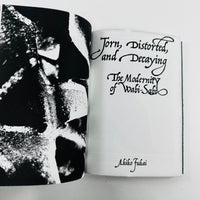 Torn, Distorted,
and Decaying
The Modernity
of Wabi-Sabi
Akiko Fukai